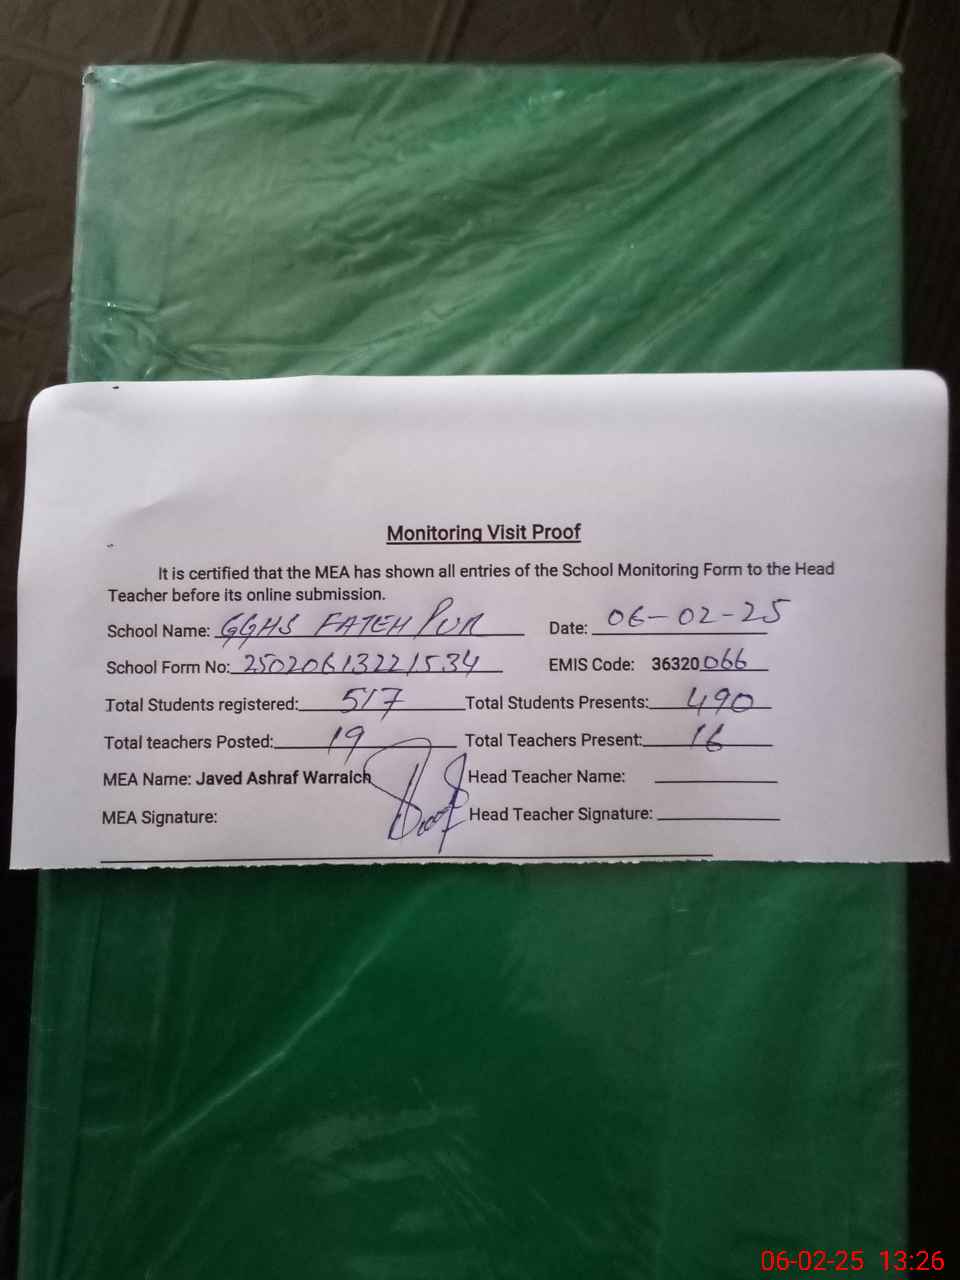 Monitoring Visit Proof
It is certified that the MEA has shown all entries of the School Monitoring Form to the Head
Teacher before its online submission.
School Name: GGHS FATEH PUR Date: 06-02-25
School Form No: 25020613221534 EMIS Code: 36320066
Total Students registered: 517 Total Students Presents: 490
Total teachers Posted: 19 Total Teachers Present: 16
MEA Name: Javed Ashraf Warraich Head Teacher Name:
MEA Signature: Head Teacher Signature:
06-02-25 13:26